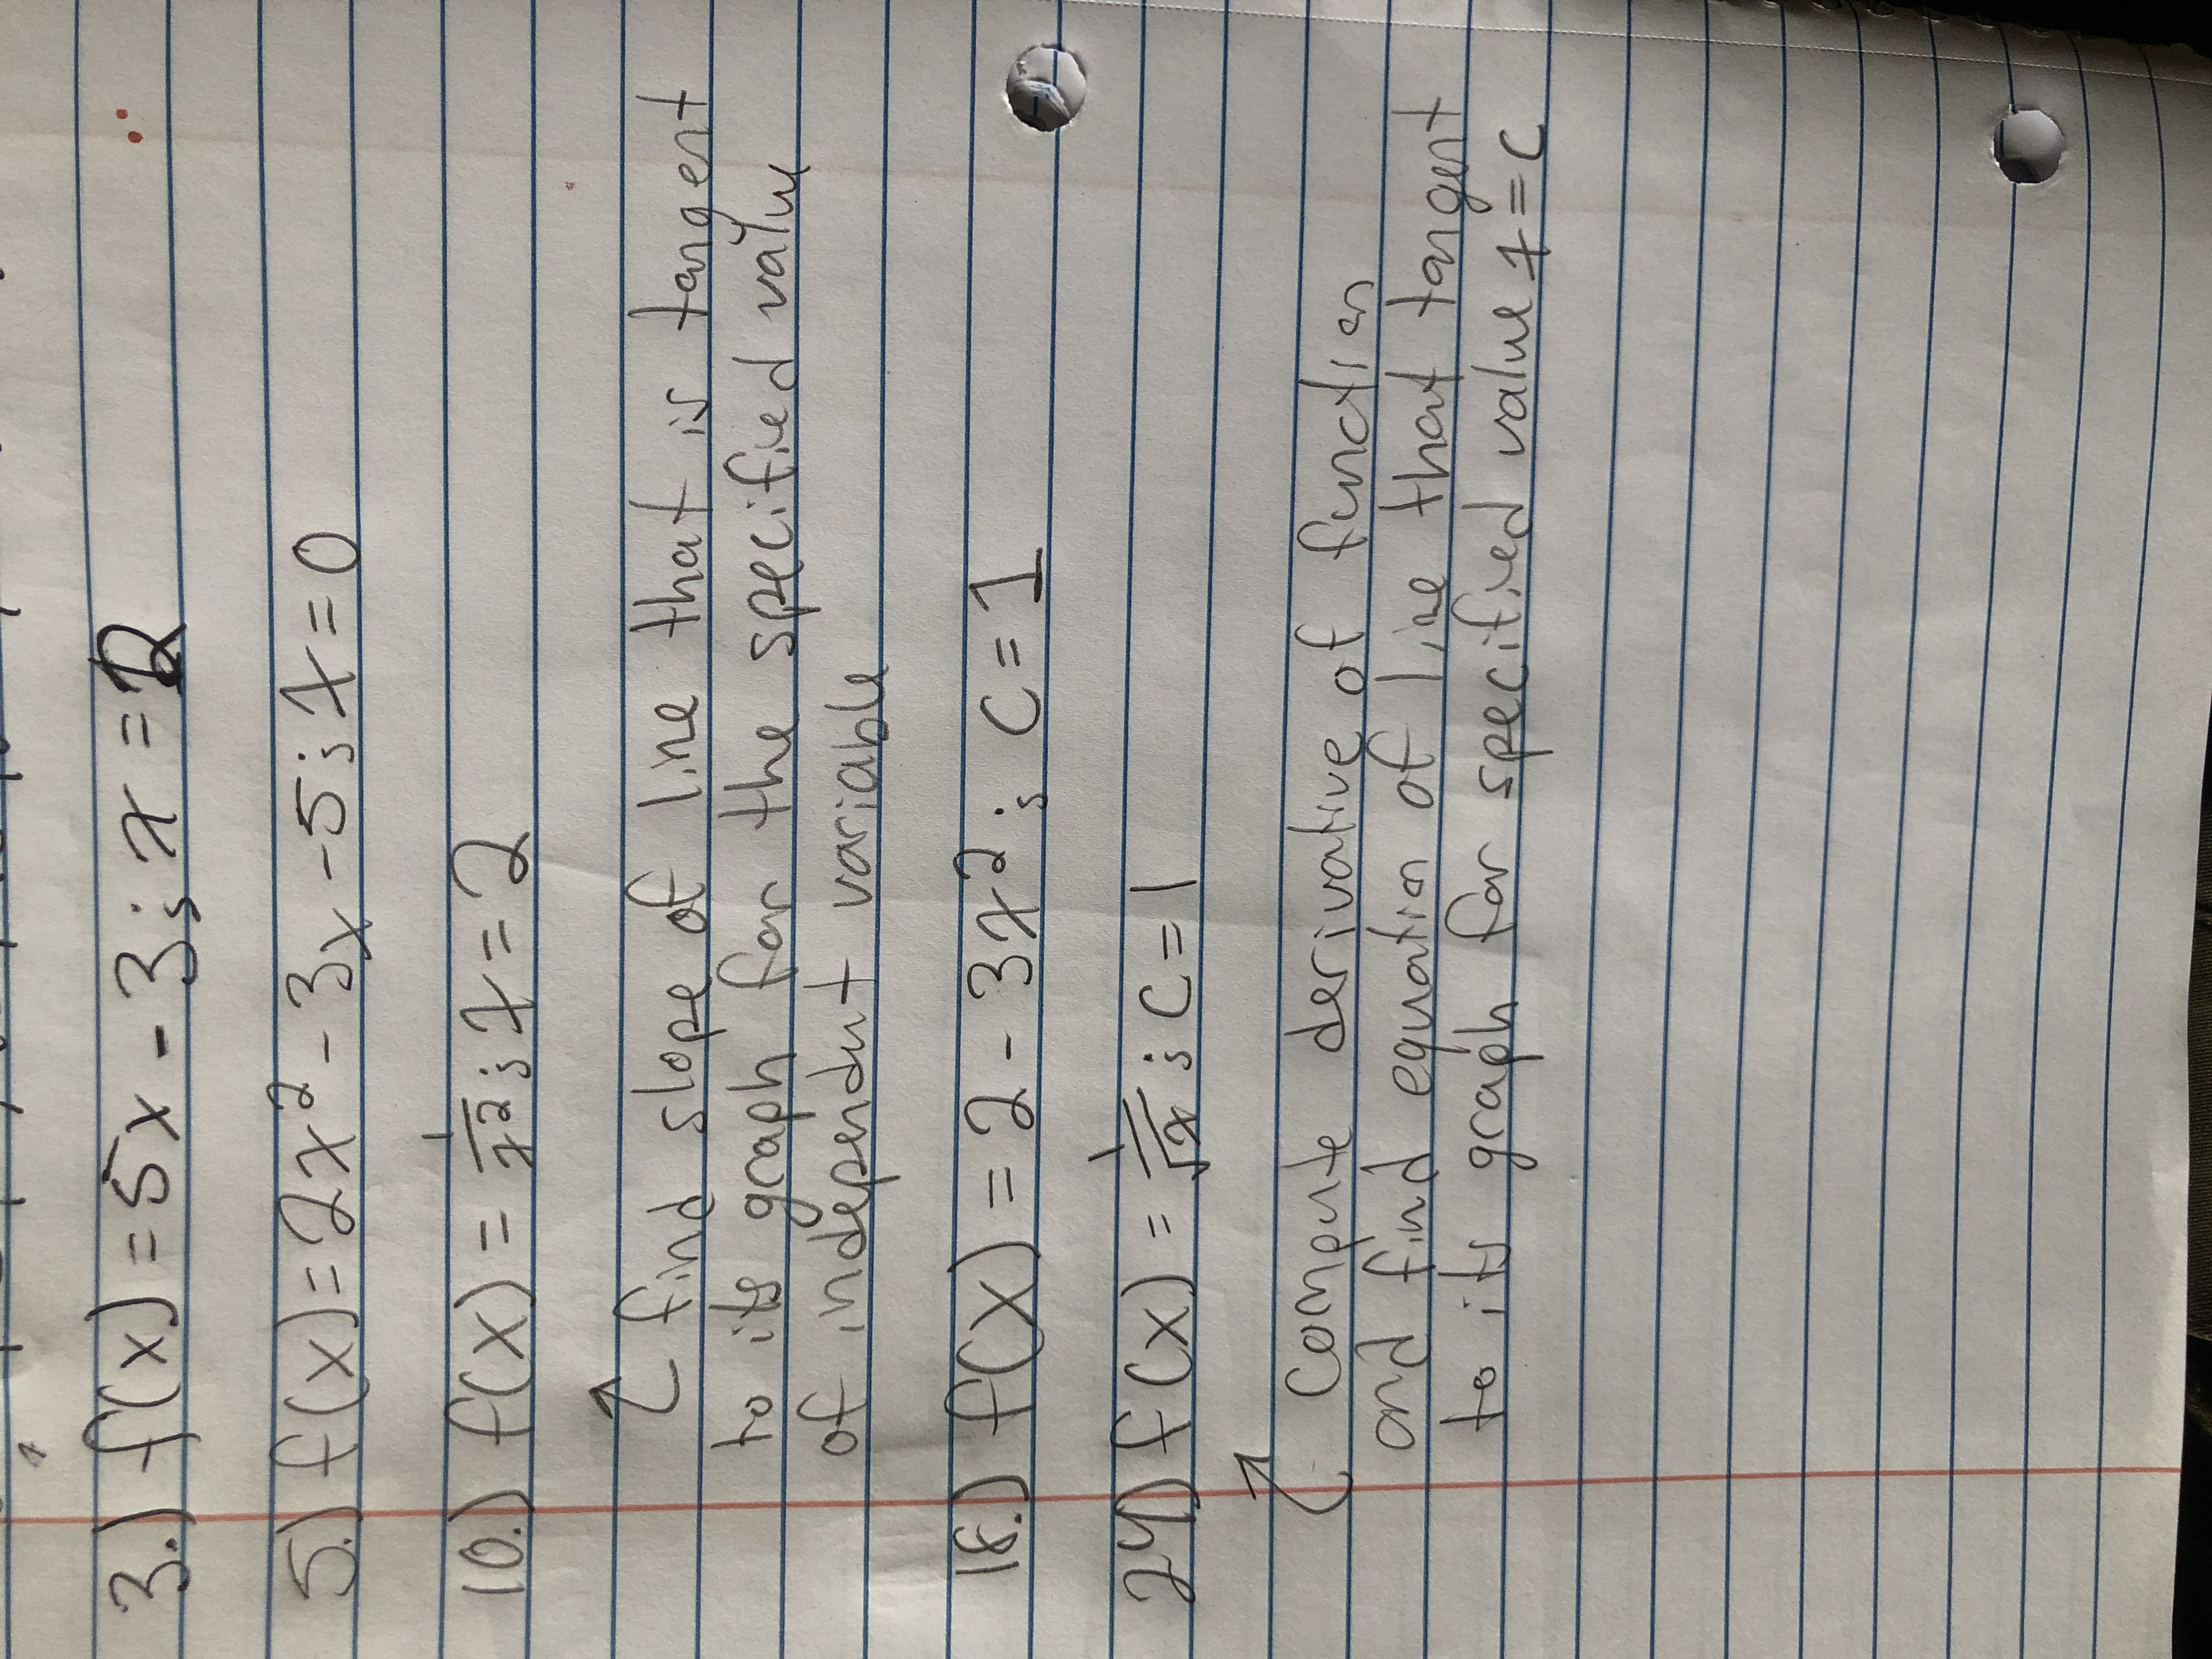 3.) f(x) = 5x - 3; x = 2
5.) f(x) = 2x² - 3x - 5; x = 0
10.) f(x) = 1/x²; x = 2
find slope of line that is tangent
to its graph for the specified value
of independent variable
18.) f(x) = 2 - 3x²; c = 1
24) f(x) = 1/√x; c = 1
Compute derivative of function
and find equation of line that tangent
to its graph for specified value x = c